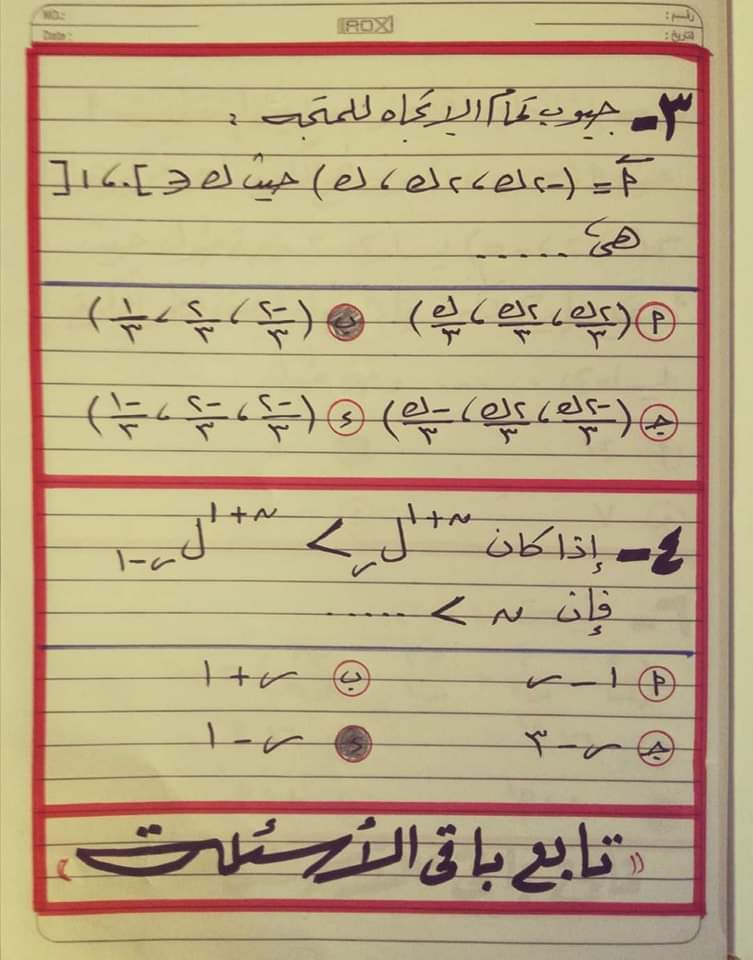 No.:
Date:
ROX
٣- جيوب تمام الاتجاه للمتجه :
أ = (-٢ك، ٢ك، ك) حيث ك ∈ ]٠، ١[
هى .....
أ (٢ك/٣، ٢ك/٣، ك/٣) ب (-٢/٣، ٢/٣، ١/٣)
جـ (-٢ك/٣، ٢ك/٣، -ك/٣) د (-٢/٣، -٢/٣، -١/٣)
٤- إذا كان ن+١ل ر > ن+١ل ر-١
فإن ن > .....
أ ١ - ر ب ر + ١
جـ ر - ٣ د ر - ١
(( تابع باقى الأسئلة ))